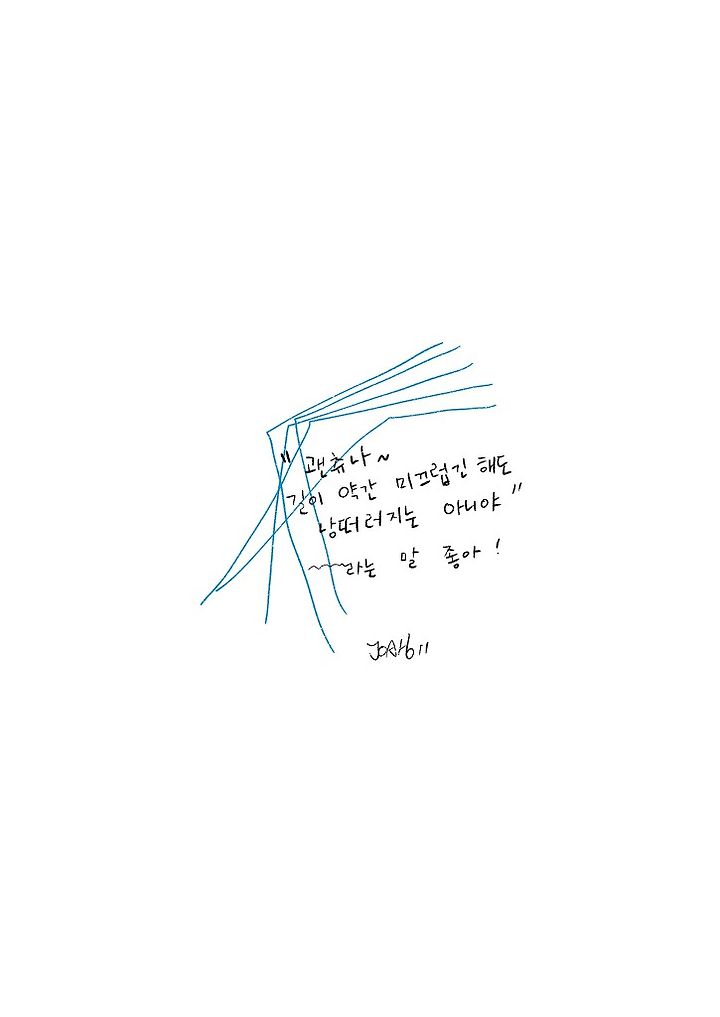 " 괜츄나~
길이 약간 미끄럽긴 해도
낭떠러지는 아니야 "
~~~라는 말 좋아!
JOAH611